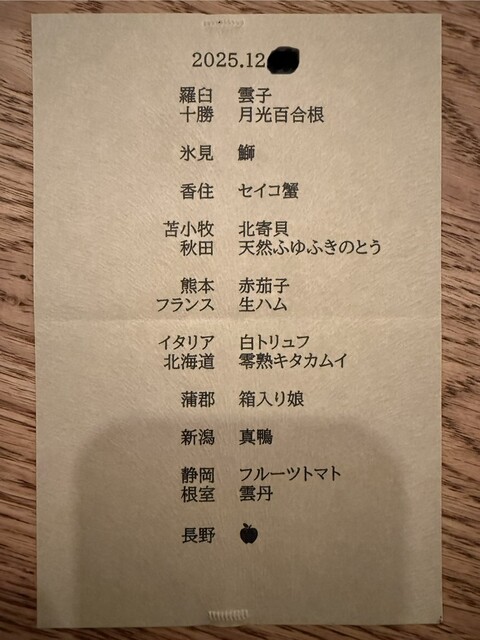 2025.12
羅臼 雲子
十勝 月光百合根
氷見 鰤
香住 セイコ蟹
苫小牧 北寄貝
秋田 天然ふゆふきのとう
熊本 赤茄子
フランス 生ハム
イタリア 白トリュフ
北海道 零熟キタカムイ
蒲郡 箱入り娘
新潟 真鴨
静岡 フルーツトマト
根室 雲丹
長野